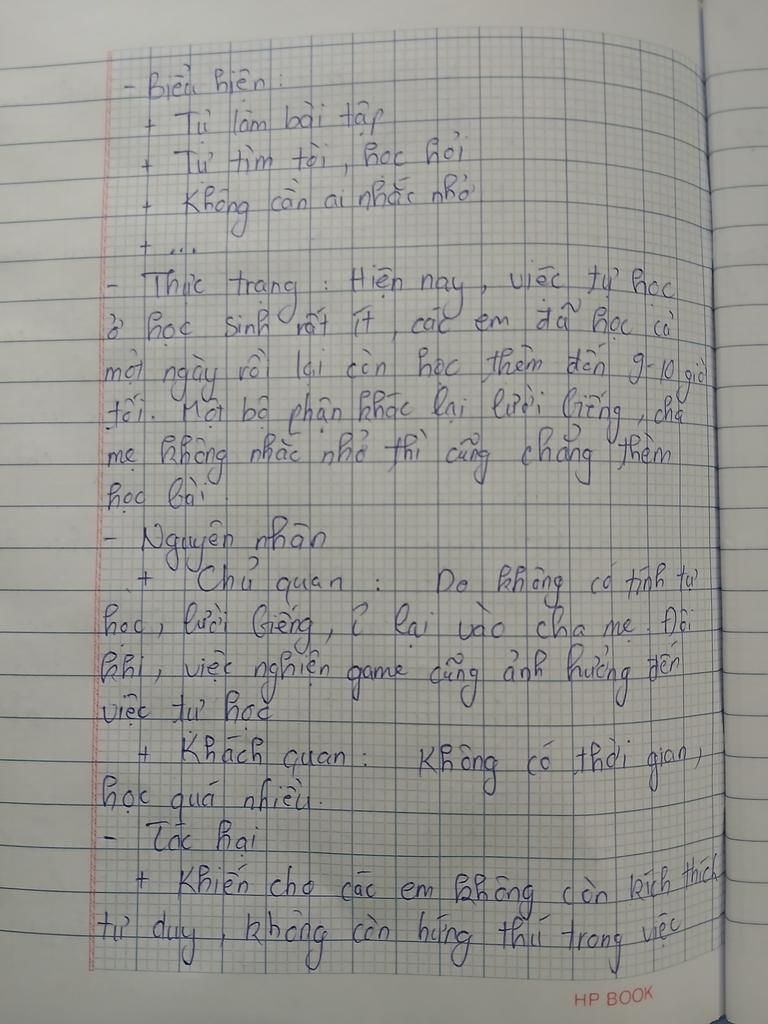 - Biểu hiện:
+ Tự làm bài tập
+ Tự tìm tòi, học hỏi
+ Không cần ai nhắc nhở
+ ...
- Thực trạng : Hiện nay, việc tự học
ở học sinh rất ít, các em đã học cả
một ngày rồi lại còn học thêm đến 9-10 giờ
tối. Một bộ phận khác lại lười biếng, cha
mẹ không nhắc nhở thì cũng chẳng thèm
học bài.
- Nguyên nhân
+ Chủ quan : Do không có tính tự
học, lười biếng, ỉ lại vào cha mẹ. Đôi
khi, việc nghiện game cũng ảnh hưởng đến
việc tự học
+ Khách quan : Không có thời gian,
học quá nhiều.
- Tác hại
+ Khiến cho các em không còn kích thích
tư duy, không còn hứng thú trong việc
HP BOOK